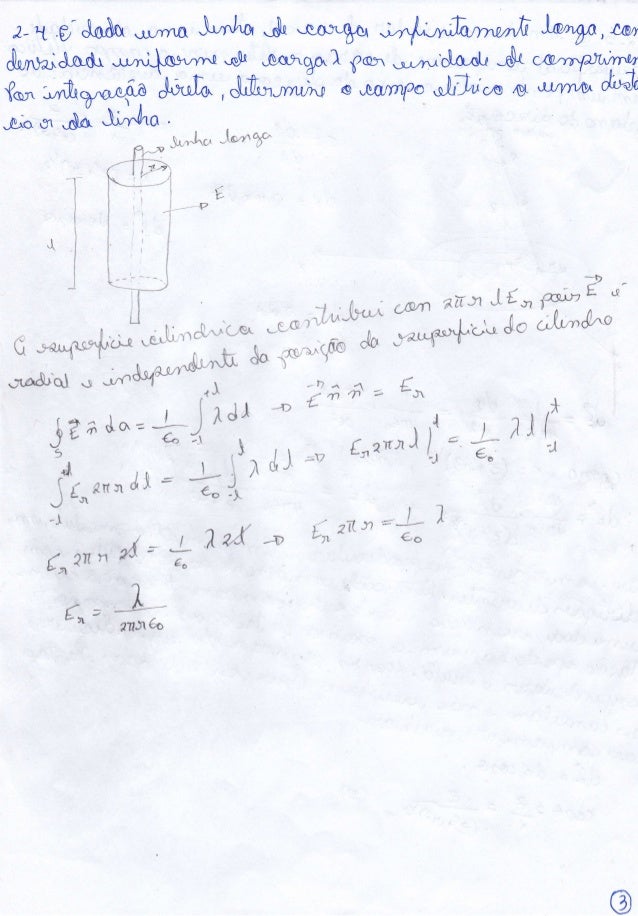 2-4 É dada uma linha de carga infinitamente longa, com
densidade uniforme de carga λ por unidade de comprimen
Por integração direta, determine o campo elétrico a uma distâ
cia r da linha.
linha longa
r
E
l
A superfície cilíndrica contribui con 2πr l Er pois E⃗ é
radial e independente da posição da superfície do cilindro
∮s E⃗ n̂ da = 1/ϵ0 ∫-l^+l λ dl → E⃗ n̂ n̂ = Er
∫-l^+l Er 2πr dl = 1/ϵ0 ∫-l^l λ dl ⇒ Er 2πr l |-l^l = 1/ϵ0 λ l |-l^+
Er 2πr 2l = 1/ϵ0 λ 2l → Er 2πr = 1/ϵ0 λ
Er = λ/2πrϵ0
3